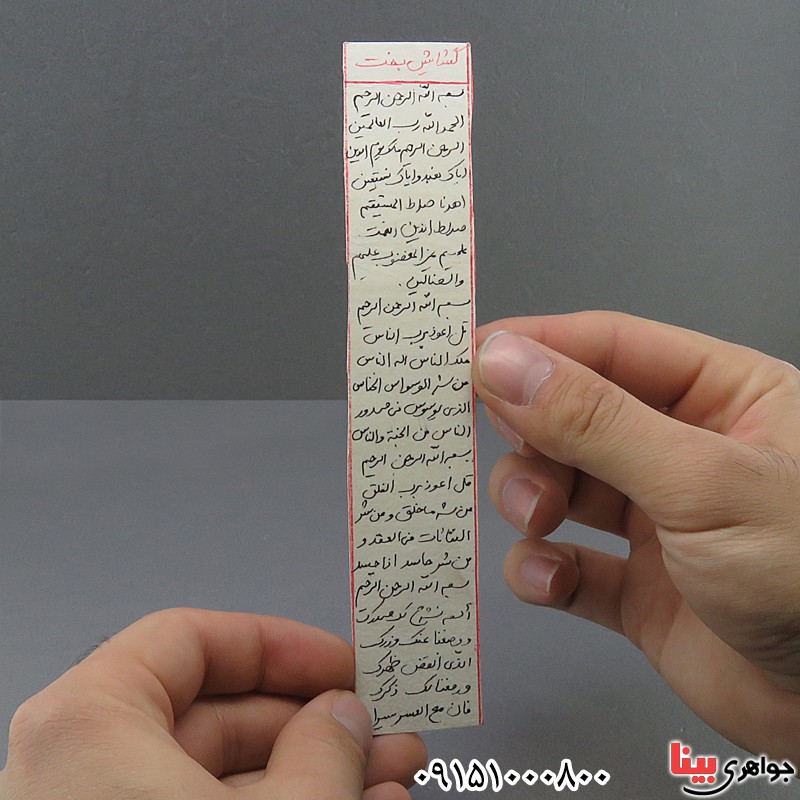 گشایش بخت
بسم الله الرحمن الرحیم
الحمد الله رب العالمین
الرحمن الرحیم مالک یوم الدین
ایاک نعبد وایاک نستعین
اهدنا صراط المستقیم
صراط الذین انعمت
علیهم غیر المغضوب علیهم
والضالین.
بسم الله الرحمن الرحیم
قل اعوذ برب الناس
ملک الناس اله الناس
من شر الوسواس الخناس
الذی یوسوس فی صدور
الناس من الجنة والناس
بسم الله الرحمن الرحیم
قل اعوذ برب الفلق
من شر ما خلق و من شر
النفاثات فی العقد و
من شر حاسد اذا حسد
بسم الله الرحمن الرحیم
ألم نشرح لک صدرک
ووضعنا عنک وزرک
الذی انقض ظهرک
ورفعنا لک ذکرک
فان مع العسر یسرا
۰۹۱۵۱۰۰۰۸۰۰
جواهری بینا